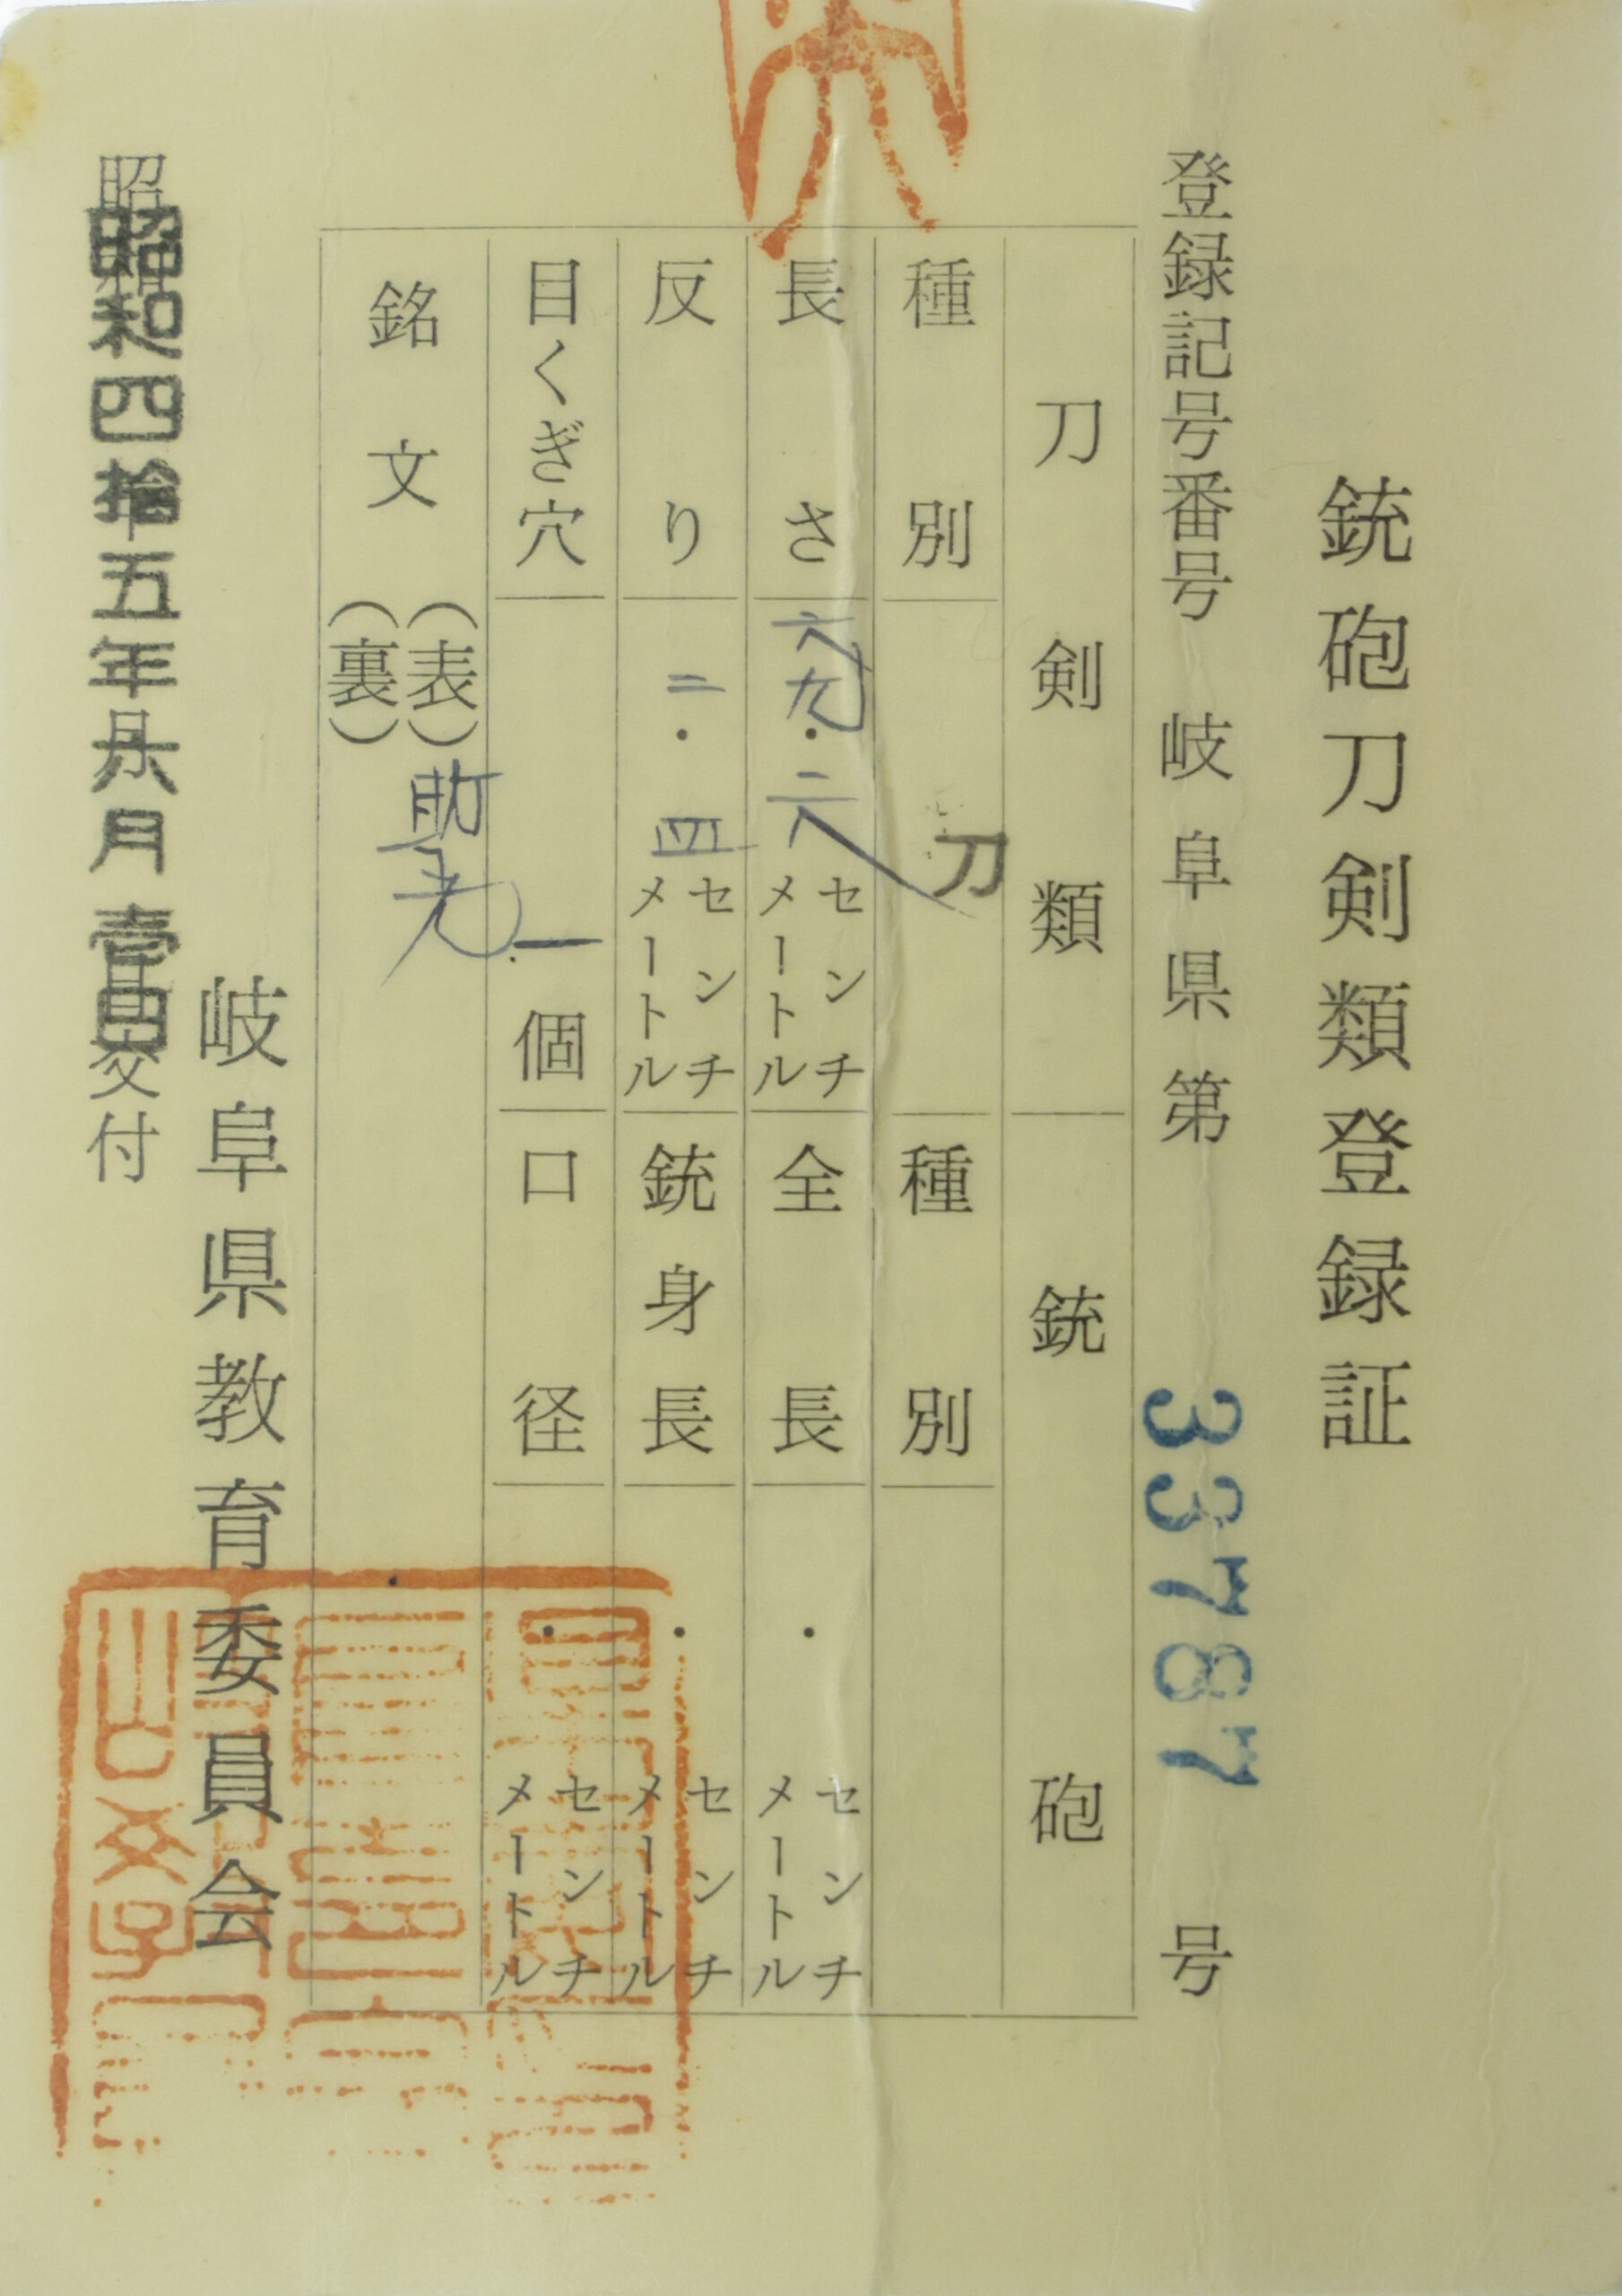 銃砲刀剣類登録証
登録記号番号 岐阜県第 33787 号
刀剣類
種別 刀
長さ 六九・六 センチメートル
反り 二・四 センチメートル
目くぎ穴 一個
銘文 (表) 助光
(裏)
銃砲
種別
全長 ・ センチメートル
銃身長 ・ センチメートル
口径 ・ センチメートル
岐阜県教育委員会
昭和四拾五年六月壹日交付